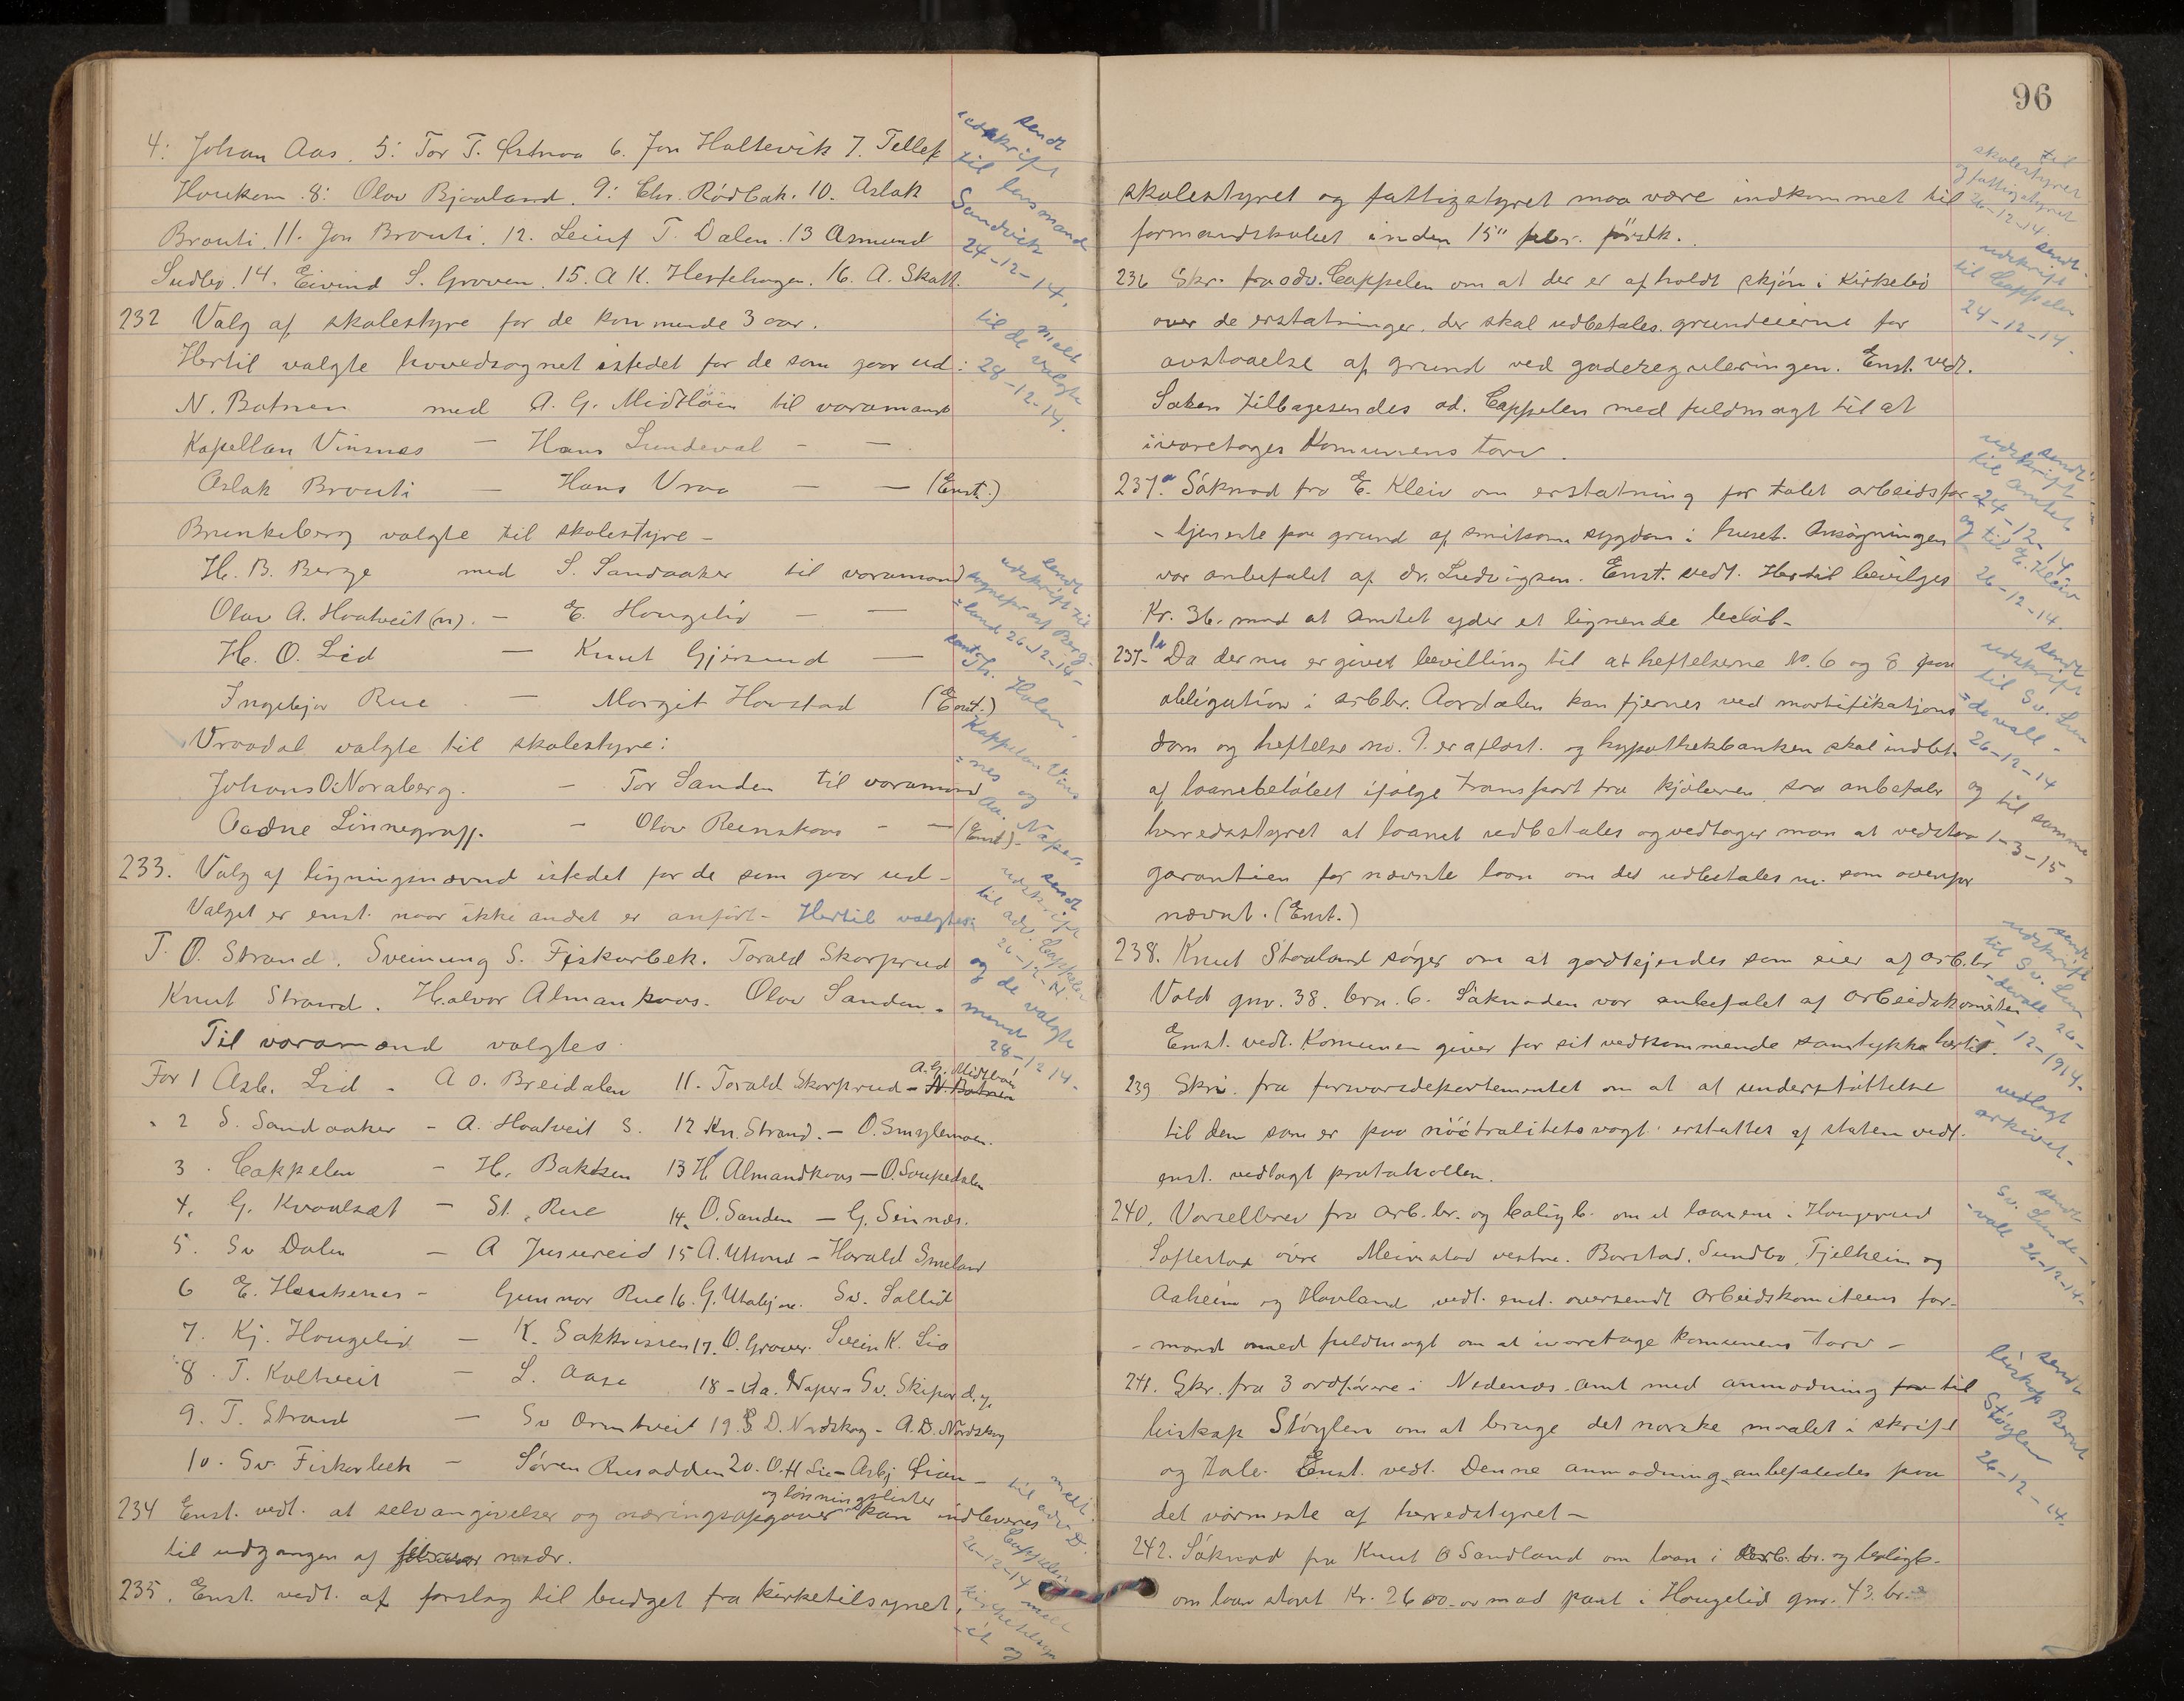 4: Johan Aas. 5: Tor T. 6. Jon Haltevik 7. Tellef
Haukom. 8: Olav Bjaaland. 9: Chr. Rødbak. 10. Aslak
Brauti. 11. Jon Brauti. 12. Leiuf T. Dalen. 13 Asmund
Sudbø. 14. Eivind S. Groven. 15. A K. 16. A. Skatt.
sendt
udskrift
til lensmand
Sandvik
24-12-14.
232 Valg af skolestyre for de kommende 3 aar.
Hertil valgte hovedsognet istedet for de som gaar ud:
N. Botnen med A. G. Midtbøen til varamand
Kapellan Vinsnes - Hans Lundeval - -
Aslak Brauti - Hans Vraa - - (Enst.)
melt
til de valgte
28-12-14.
Brunkeberg valgte til skolestyre -
H. B. Berge med S. Sandaaker til varamand
Olav A. Haatveit (n). - E. Haugelid - -
H. O. Lid - Knut Gjersund -
Ingebjør Rue - Margit Haustad (Enst.)
sendt
udskrift til
sogneprest Berg-
=land 26-12-14-
Vraadal valgte til skolestyre:
Johans O. Noraberg. - Tor Sanden til varamand
Aadne Linnegrass. - Olav - - (Enst)-
Kappelan Vins
=nes og
Aa. Naper.
233. Valg af ligningsnævnd istedet for de som gaar ud-
Valget er enst. naar ikke andet er anført- Hertil valgtes:
T. O. Strand. Sveinung S. Fiskarbek. Torald Skarprud
Knut Strand. Halvor Almankaas. Olav Sanden.
sendt
udskrift
til adv. Cappelen
26-12-14.
og de valgte
mænd
28-12-14-
Til varamænd valgtes
For 1 Asb. Lid - A O. Breidalen 11. Torald Skarprud - A. G. Midtbøen N. Botnen
" 2 S. Sandaaker - A. Haatveit S. 12 Kn. Strand. - O. Smylemoen.
3. Cappelen - H. Bakksen 13 H. Almandkaas - O. Soupedalen
4. G. Kvaalsæt - St. Rue 14. O. Sanden - G. Seinnæs.
5. Sv Dalen - A Jusureid 15 A. Utsond - Harald Smeland
6 E. Haukenes - Gunnar Rue 16. G. Utabjør. Sv. Sollid
7. Kj. Haugelid - K. Sakkvissen 17. O. Grover. Svein K. Lid
8. T. Kaltveit - L. Aase 18 - Aa. Naper - Sv. Skipard.
9. T. Strand - Sv Ormtveit 19. D. Nordskog - A. D. Nordskog
10. Sv. Fiskarbek - Søren Rusodden 20. O. H Lie - Asbj Lian -
234 Enst. vedt. at selvangivelser og næringsopgaver og lønningslister kan indleveres
til udgangen af februar
melt.
til adv. D.
Cappelen
26-12-14
235. Enst. vedt. af forslag til budget fra kirketilsynet,
melt
kirketilsyn
-et og
96
skolestyret og fattigstyret maa være indkommet til
formandskabet inden 15" febr. førstk.
til
skolestyret
og fattigstyret
26-12-14.
236 Skr. fra adv. Cappelen om at der er afholdt skjøn i Kirkebø
over de erstatninger, der skal udbetales grundeierne for
avstaaelse af grund ved gaderegulering​en. Enst. vedt.
Saken tilbagesendes ad. Cappelen med fuldmagt til at
ivaretages Komunens tarv.
sendt
udskrift
til Cappelen
24-12-14.
237a Søknad fra E. Kleiv om erstatning for tabt arbeidsfor-
-tjeneste paa grund af smitsom sygdom i huset. Ansøgningen
var anbefalet af dr. Ludvigsen. Enst. vedt. Hertil bevilges
Kr. 36, mod at amtet yder et lignende beløb-
sendt
udskrift
til amtet
24-12-14
og til E. Kleiv
26-12-14.
237-b Da der nu er givet bevilling til at heftelserne No. 6 og 8 paa
obligation i arbbr. Aardalen kan fjernes ved mortifikations
dom og heftelse no. 9. er aflæst. og hypothekbanken skal indbet.
af laanebeløbet ifølge transport fra kjøberen, saa anbefaler
herredsstyret at laanet udbetales og vedtager man at vedstaa
garantien for nævnte laan om det udbetales nu som ovenfor
nævnt. (Enst.)
sendt
udskrift
til Sv. Lun
=devall -
26-12-14
og til samme
1-3-15-
238. Knut Staaland søger om at godkjendes som eier af arb.br.
Vold gnr. 38. brn. 6. Søknaden var anbefalet af arbeidskomiteen
Enst. vedt. Komunen giver for sit vedkommende samtykke hertil.
sendt
udskrift
til Sv. Lun
-devall 26-
12-1914-
239 Skri. fra forsvarsdepartementet om at at understøttelse
til dem som er paa nøitralitetsvagt erstattes af staten vedt.
enst. vedlagt protakollen.
vedlagt
arkivet-
240. Varselbrev fra arb.br. og boligb. om at laanene i Haugerud
Loftestad øvre Meinstad vestre. Barstad, Sundbø, Fjelheim og
Aaheim og Havland vedt. enst. oversendt arbeidskomiteens for-
-mand med fuldmagt om at ivaretage komunens tarv -
sendt
Sv. Lunde-
-vall 26-12-14-
241. Skr. fra 3 ordførere i Nedenæs amt med anmodning fra til
biskop Støylen om at bruge det norske maalet i skrift
og tale. Enst. vedt. Denne anmodning anbefaledes paa
det varmeste af herredstyret -
sendt
biskop Bernt
Støylen
26-12-14.
242. Søknad fra Knut O Sandland om laan i arb. br. og boligb-
om laan stort Kr. 2600.00 mod pant i Haugelid gnr. 43. br.